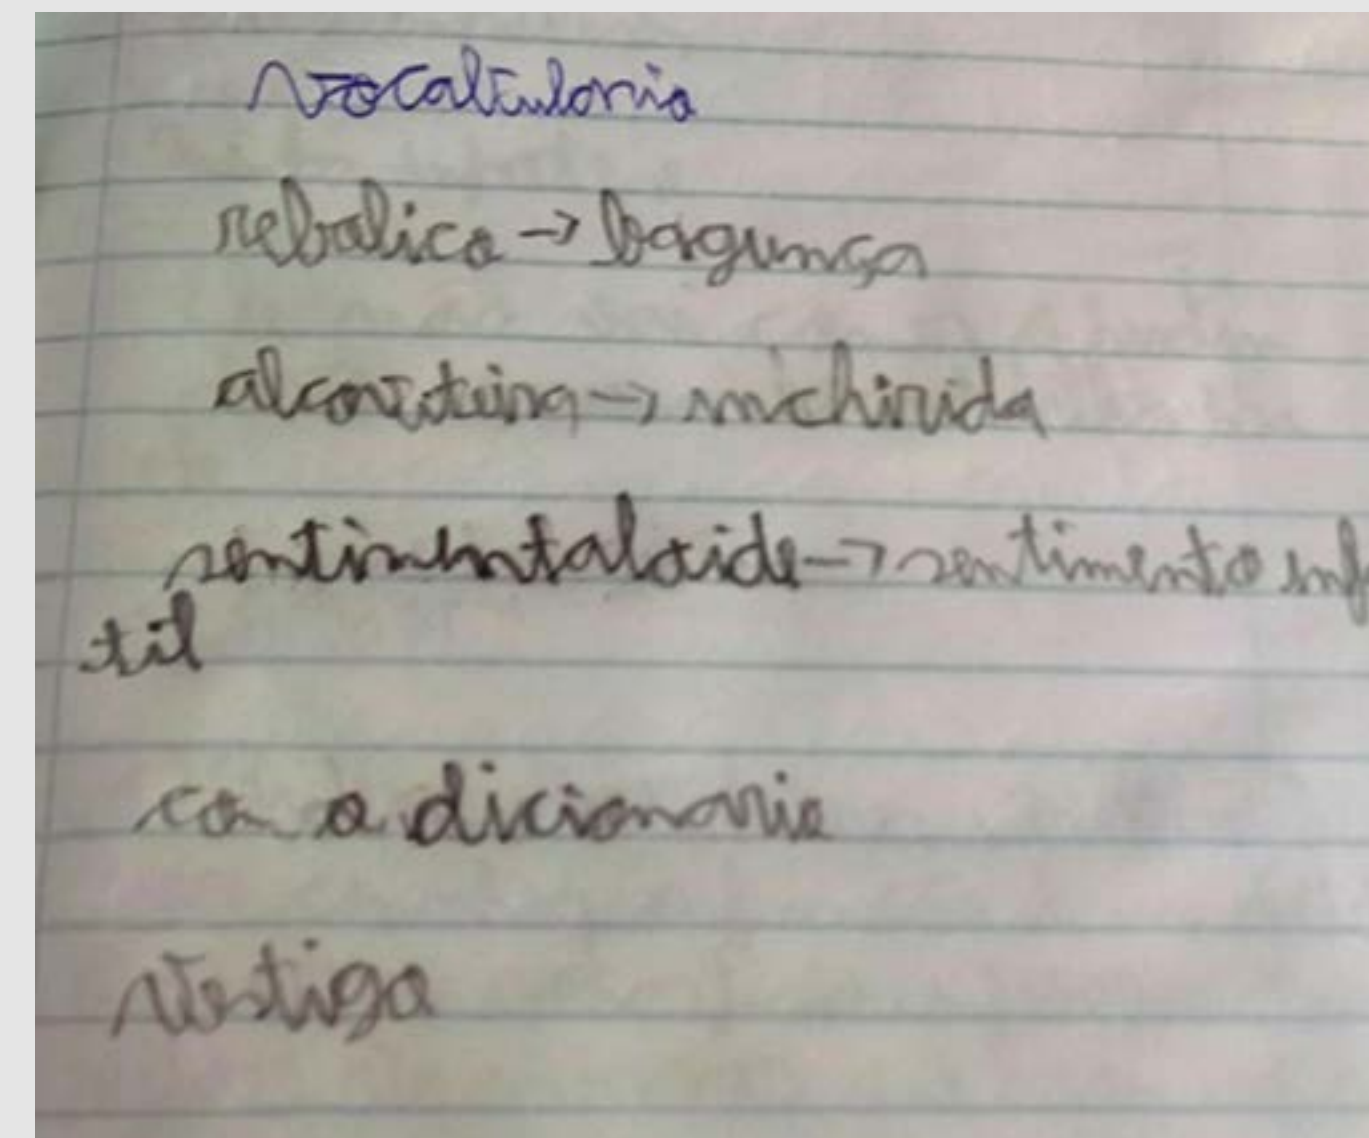 vocabulario
rebolico → bagunça
alcoviteira → inchirida
sentimentaloide → sentimento inf
til
com o dicionario
vestigo